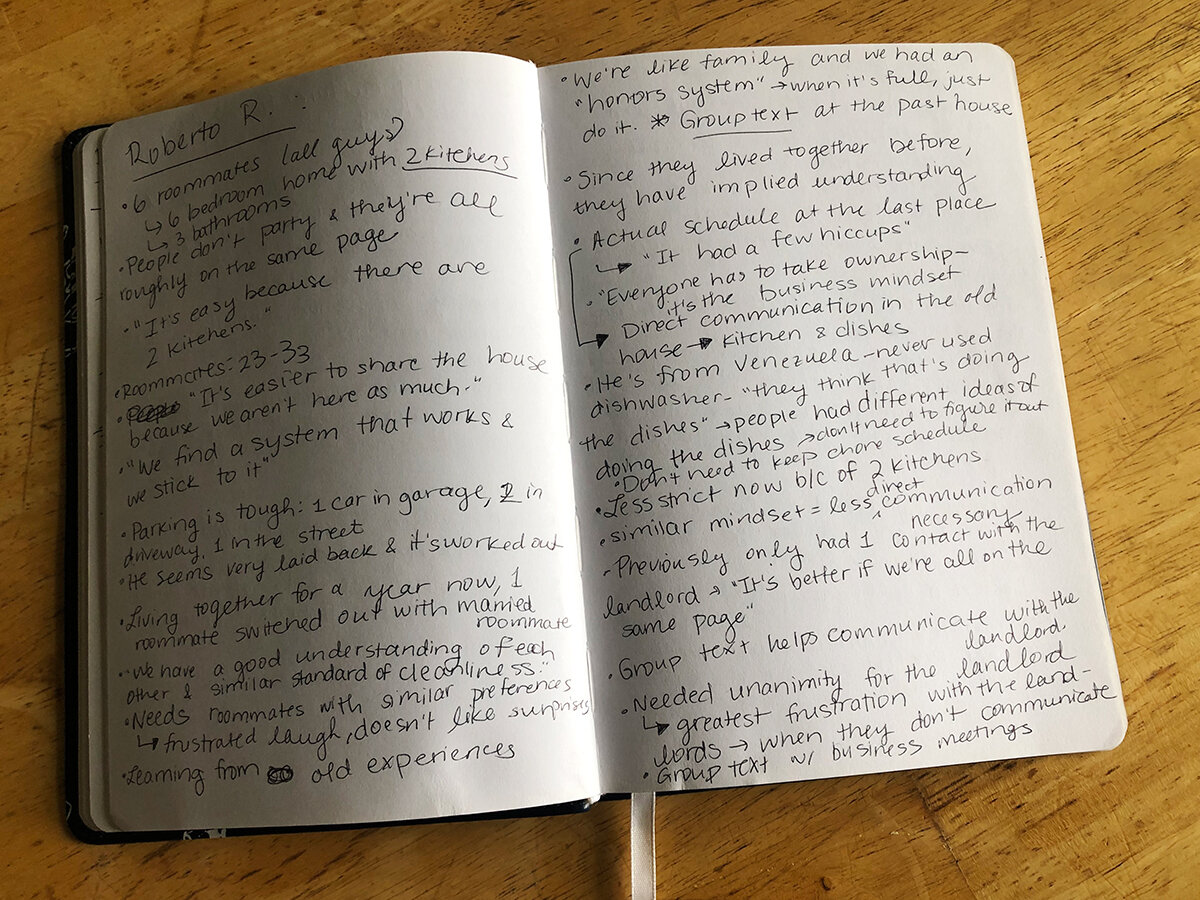 Roberto R. :
• 6 roommates (all guys)
↳ 6 bedroom home with 2 kitchens
↳ 3 bathrooms
• People don't party & they're all
roughly on the same page
• "It's easy because there are
2 kitchens."
• Roommates: 23-33
• "It's easier to share the house
because we aren't here as much."
• "We find a system that works &
we stick to it"
• Parking is tough: 1 car in garage, 2 in
driveway, 1 in the street
• He seems very laid back & it's worked out
• Living together for a year now, 1
roommate switched out with married
roommate
• "We have a good understanding of each
other & similar standard of cleanliness."
• Needs roommates with similar preferences
↳ frustrated laugh, doesn't like surprises
• Learning from old experiences
• We're like family and we had an
"honors system" → when it's full, just
do it. * Group text at the past house
• Since they lived together before,
they have implied understanding
• Actual schedule at the last place
↳ "It had a few hiccups"
• "Everyone has to take ownership—
it's the business mindset
→ Direct communication in the old
house → kitchen & dishes
• He's from Venezuela - never used
dishwasher - "they think that's doing
the dishes" → people had different ideas of
doing the dishes → don't need to figure it out
• Don't need to keep chore schedule
• Less strict now b/c of 2 kitchens
• similar mindset = less direct communication
necessary
- Previously only had 1 contact with the
landlord → "It's better if we're all on the
same page"
• Group text helps communicate with the
landlord.
• Needed unanimity for the landlord
↳ greatest frustration with the land-
lords → when they don't communicate
• Group text w/ business meetings